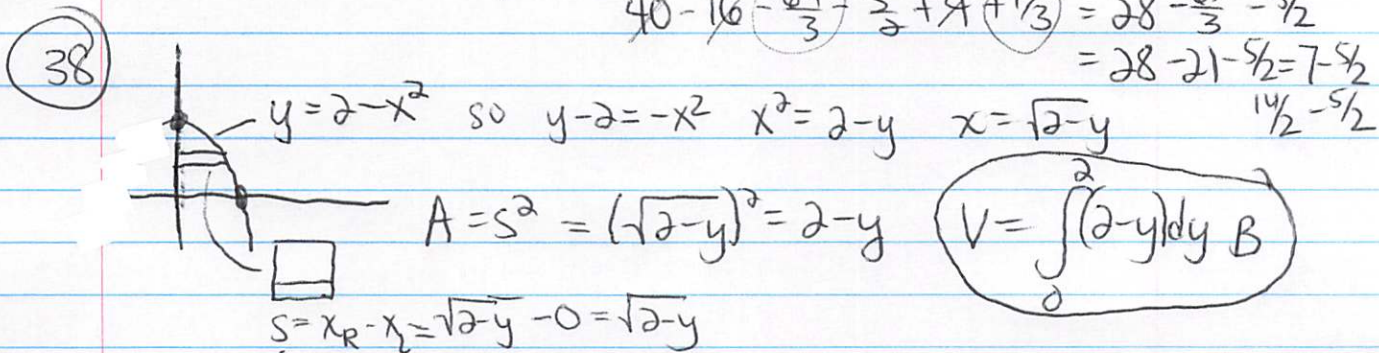 40 - 16 - - 5/2 + 4 + 1/3 = 28 - /3 - 5/2
= 28 - 21 - 5/2 = 7 - 5/2
14/2 - 5/2
38
y = 2 - x² so y - 2 = -x² x² = 2 - y x = √2-y
A = s² = (√2-y)² = 2 - y V = ∫₀² (2-y)dy B
s = x_R - x_L = √2-y - 0 = √2-y